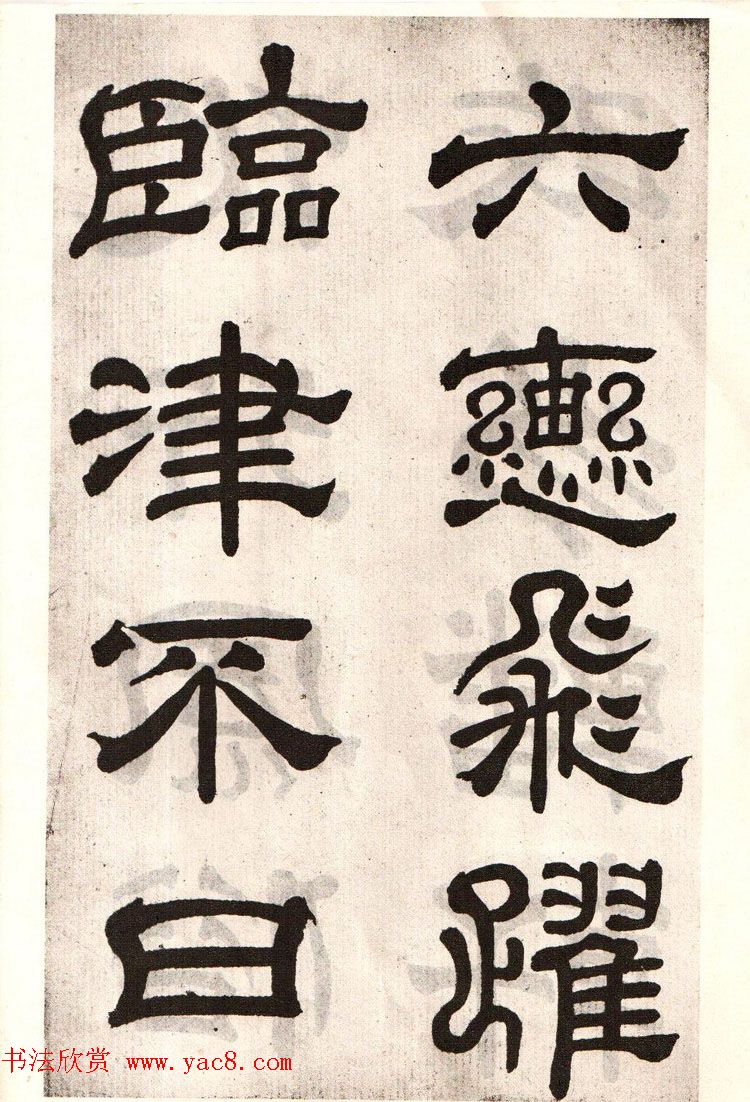 六轡飛躍
臨津不日
书法欣赏 www.yac8.com